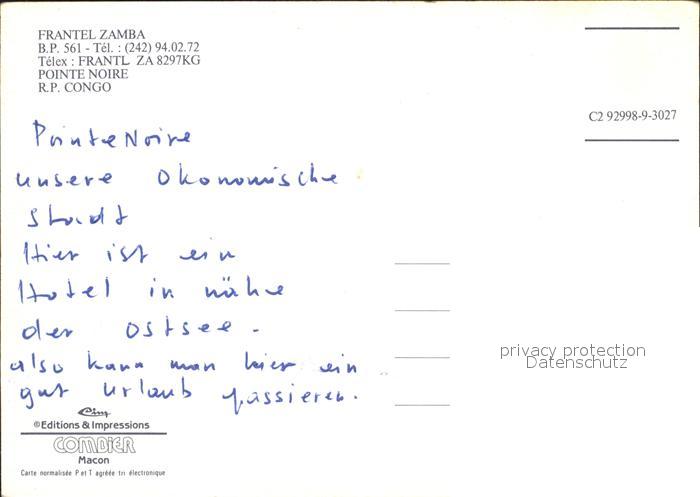 FRANTEL ZAMBA
B.P. 561 - Tél. : (242) 94.02.72
Télex : FRANTL ZA 8297KG
POINTE NOIRE
R.P. CONGO
C2 92998-9-3027
Pointe Noire
unsere Okonomische
Stadt
Hier ist ein
Hotel in nähe
der Ostsee.
also kann man hier ein
gut Urlaub passieren.
privacy protection
Datenschutz
Cim
©Editions & Impressions
COMBIER
Macon
Carte normalisée P et T agréée tri électronique